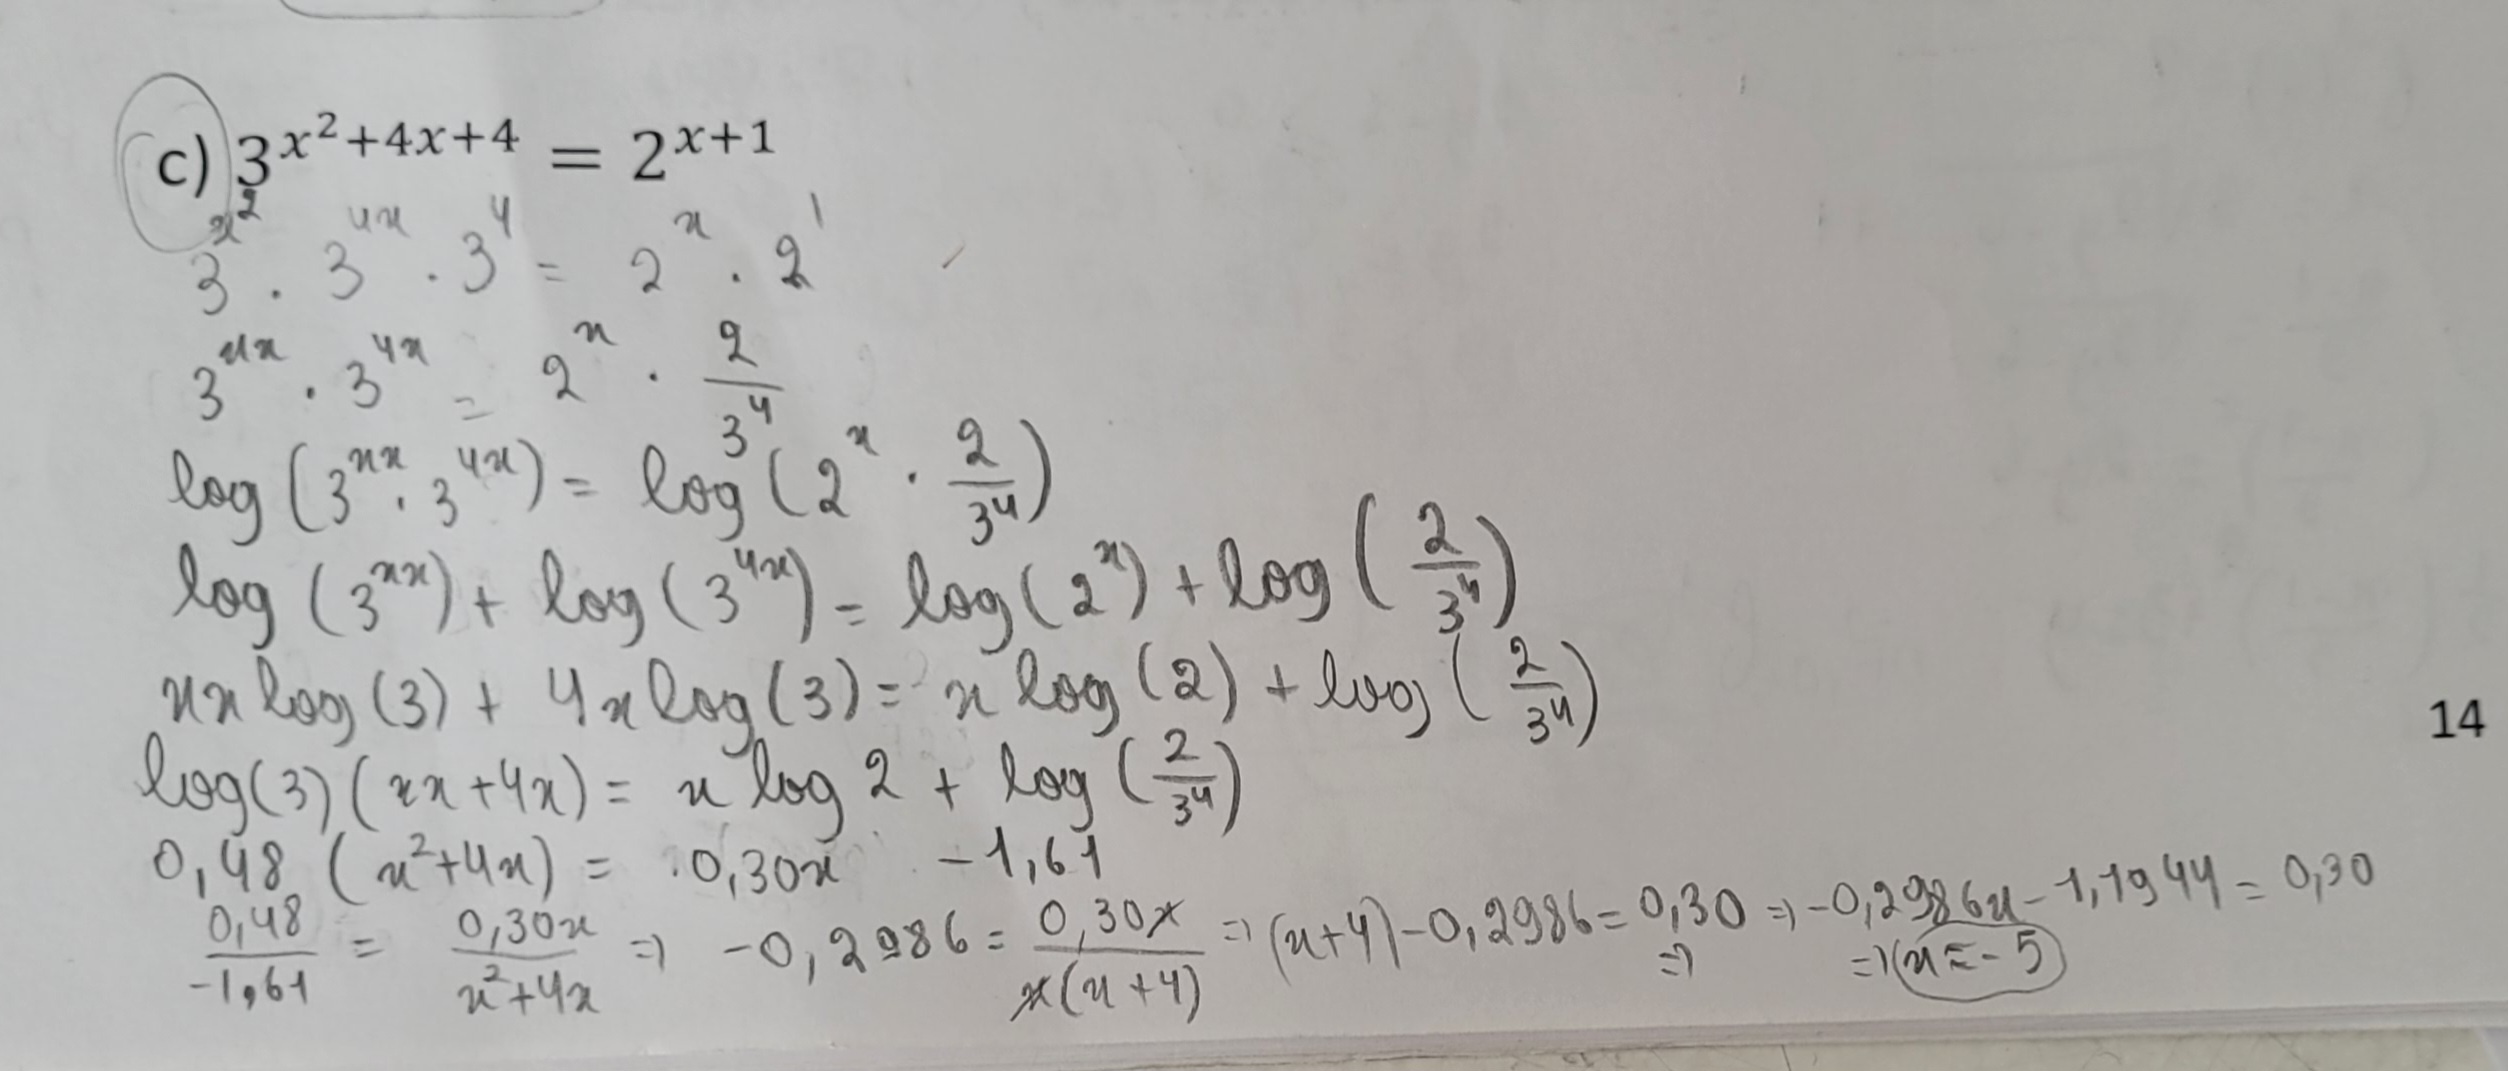 c) 3^{x²+4x+4} = 2^{x+1}
3^{x²} · 3^{4x} · 3^4 = 2^x · 2^1
3^{xx} · 3^{4x} = 2^x · 2/3^4
log (3^{xx} · 3^{4x}) = log (2^x · 2/3^4)
log (3^{xx}) + log (3^{4x}) = log (2^x) + log (2/3^4)
xx log (3) + 4x log (3) = x log (2) + log (2/3^4)
14
log(3) (xx + 4x) = x log 2 + log (2/3^4)
0,48 (x²+4x) = 0,30x - 1,61
0,48/-1,61 = 0,30x/x²+4x => -0,2986 = 0,30x/x(x+4) => (x+4) -0,2986 = 0,30 => -0,2986x - 1,1944 = 0,30
=> => x = -5